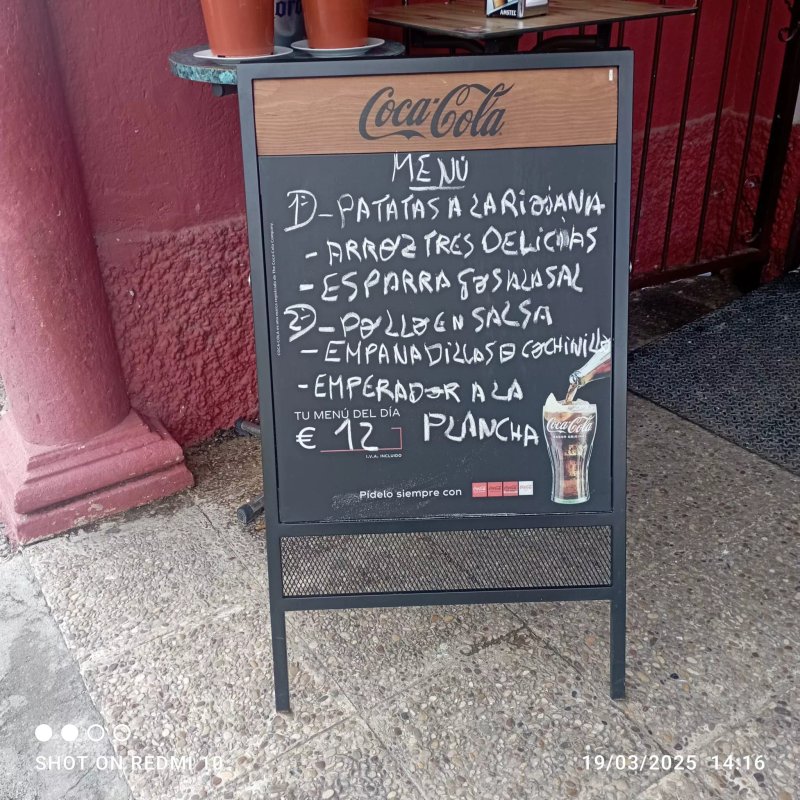 AMSTEL
Coca-Cola
MENÚ
1)-PATATAS A LA RIOJANA
-ARROZ TRES DELICIAS
-ESPARRAGOS A LA SAL
2)-POLLO EN SALSA
-EMPANADILLAS D COCHINILLO
-EMPERADOR A LA
PLANCHA
TU MENÚ DEL DÍA
€ 12
I.V.A. INCLUIDO
Coca-Cola
SABOR ORIGINAL
Pídelo siempre con
SHOT ON REDMI 10
19/03/2025 14:16